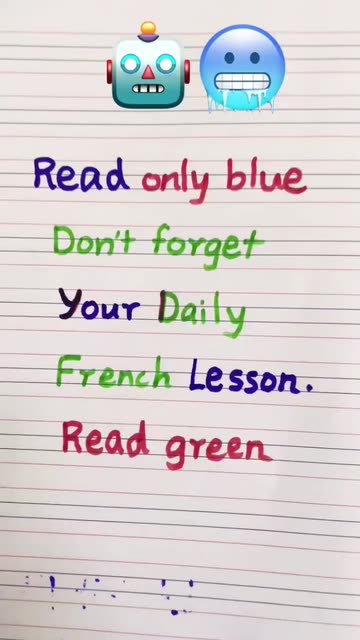 Read only blue
Don't forget
Your Daily
French Lesson.
Read green